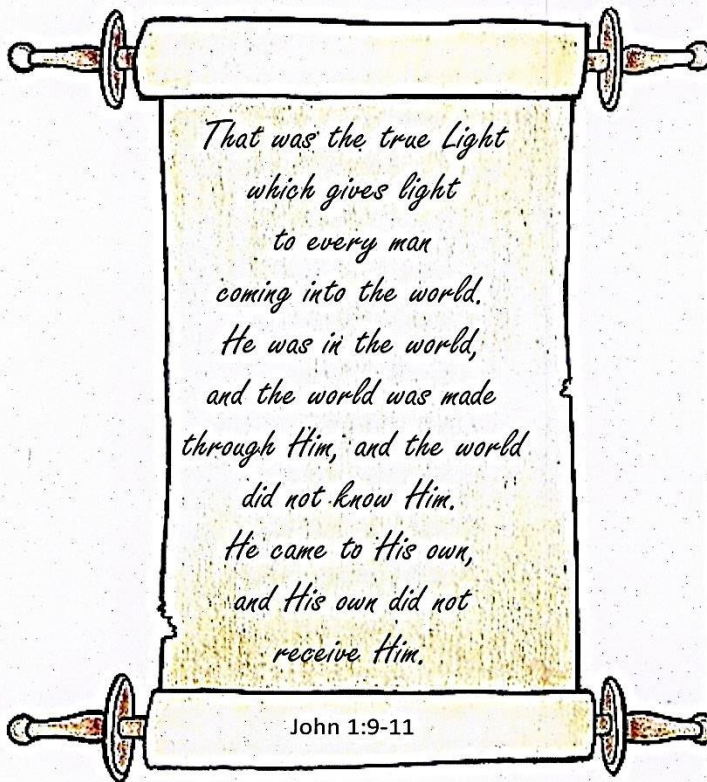 That was the true Light
which gives light
to every man
coming into the world.
He was in the world,
and the world was made
through Him, and the world
did not know Him.
He came to His own,
and His own did not
receive Him.
John 1:9-11